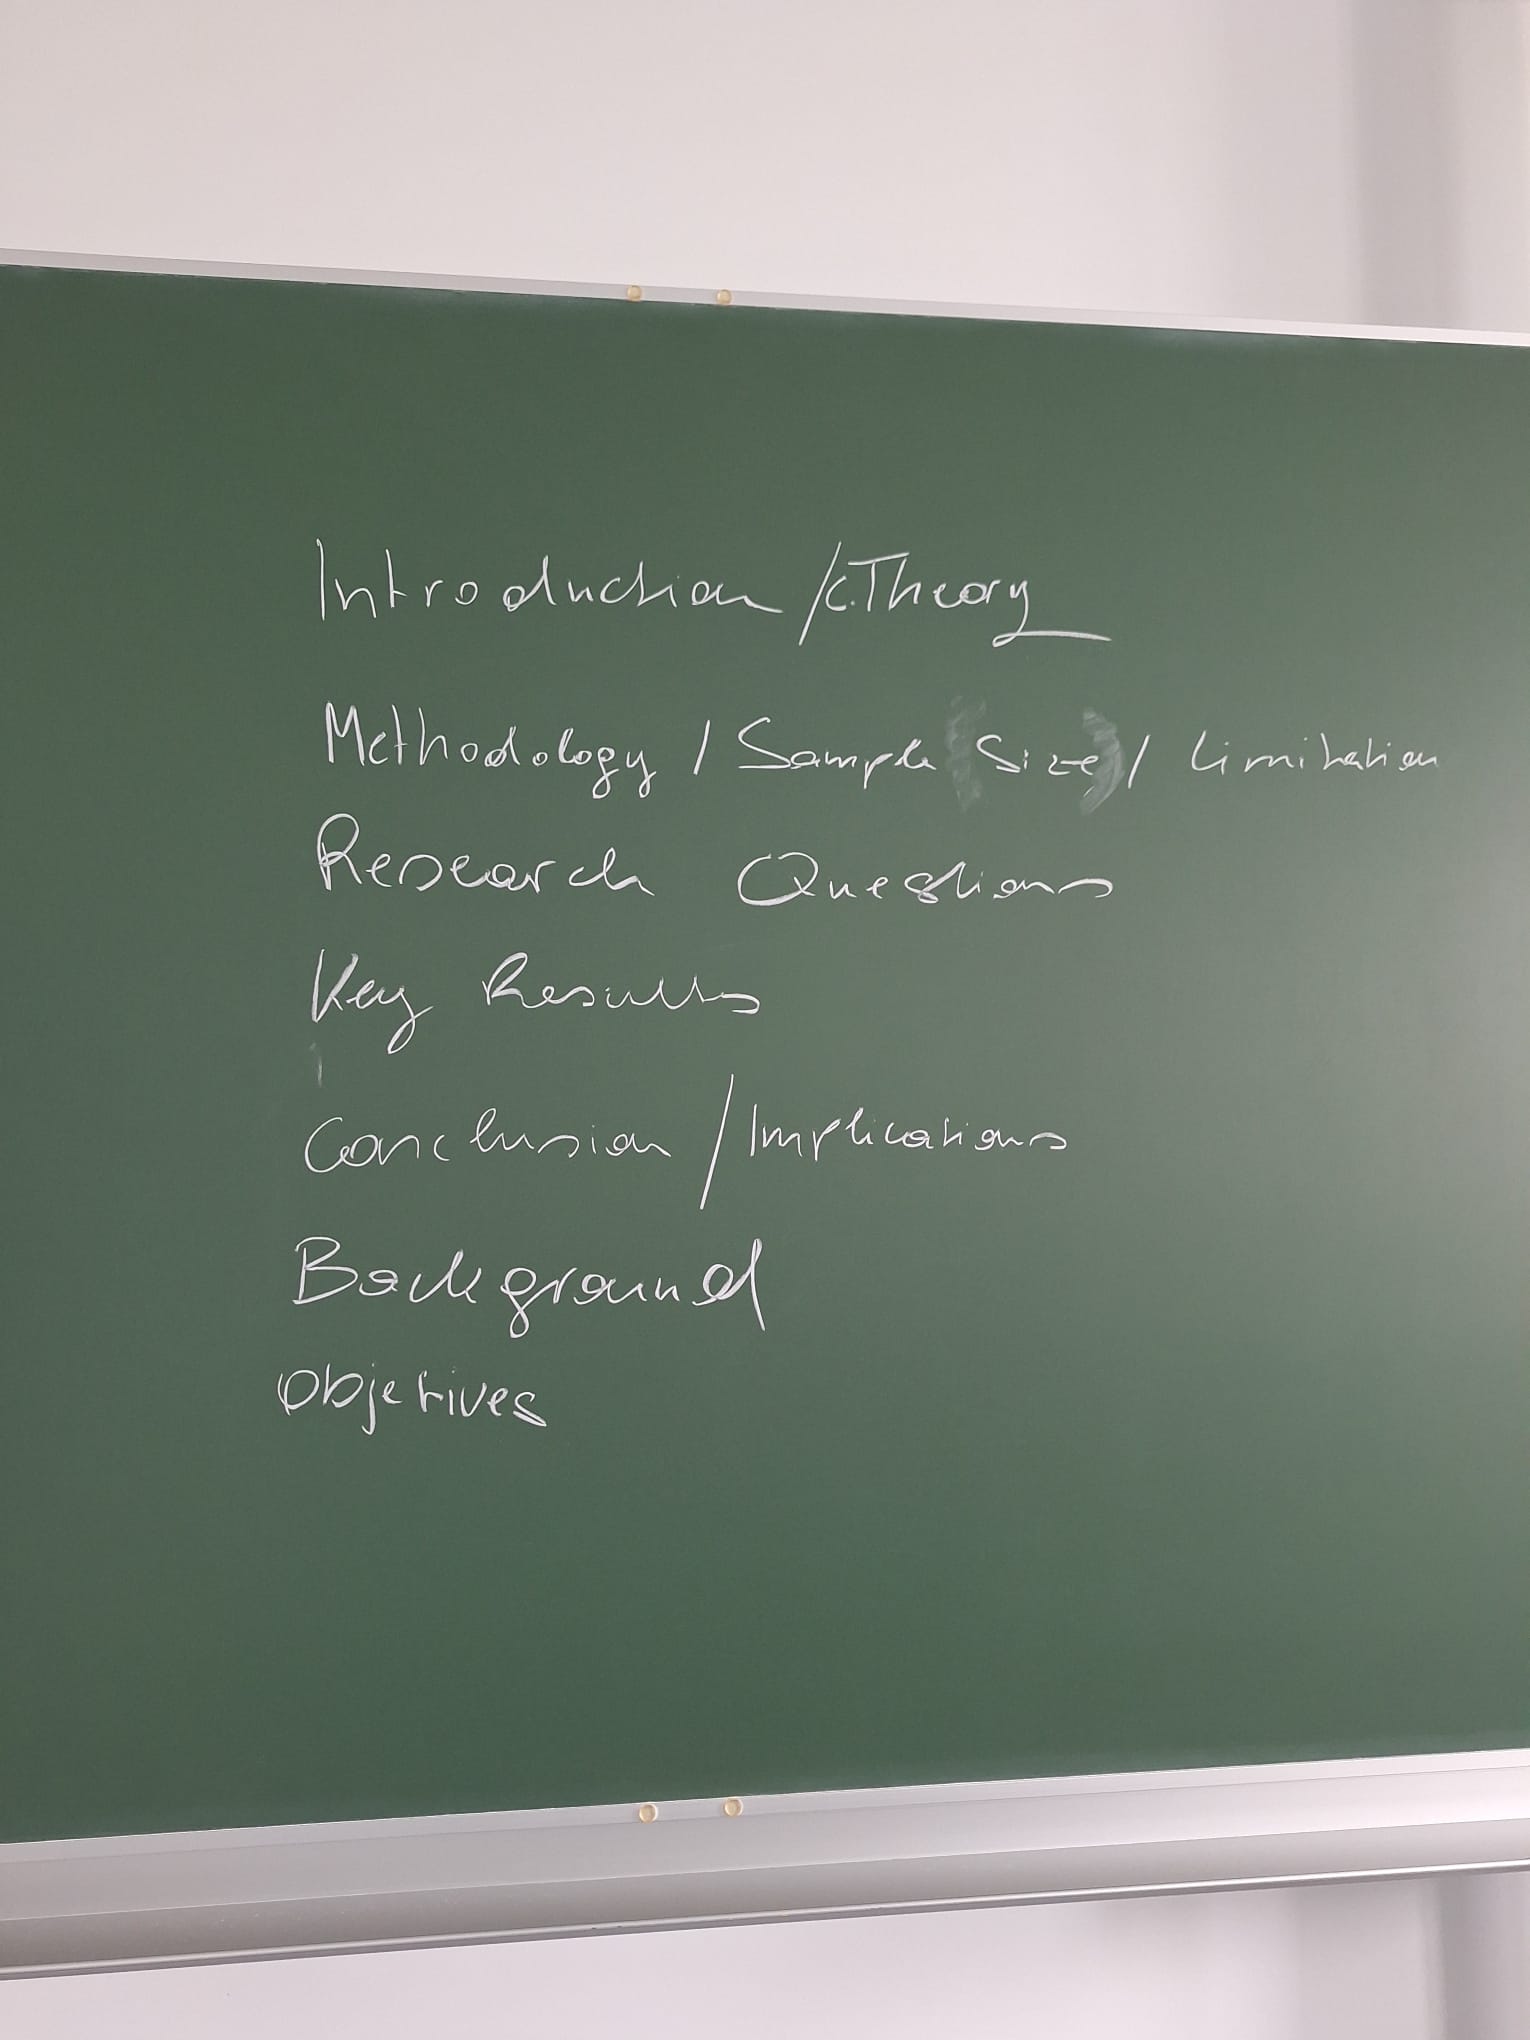 Introduction / c.Theory
Methodology / Sample Size / Limitation
Research Questions
Key Results
Conclusion / Implications
Background
Objetives